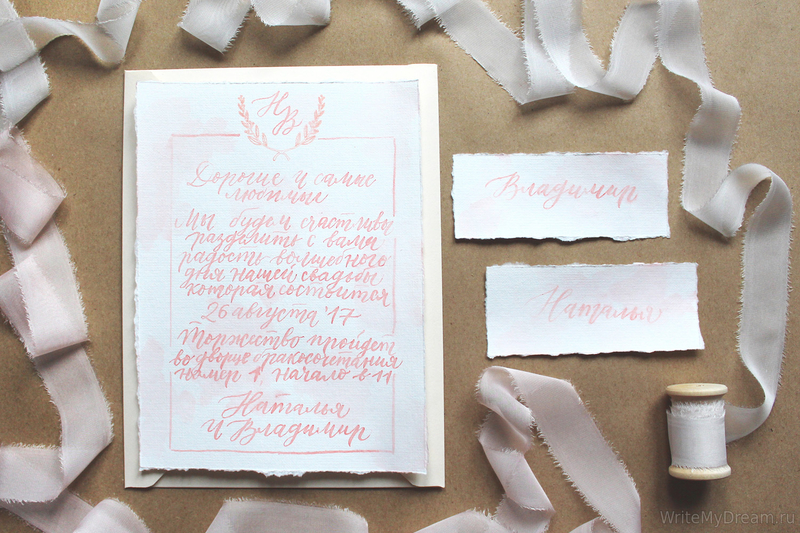 НВ
Дорогие и самые
любимые
Мы будем счастливы
разделить с вами
радость волшебного
дня нашей свадьбы
которая состоится
26 августа '17
Торжество пройдет
во дворце бракосочетания
номер 1, начало в 11
Наталья
и Владимир
Владимир
Наталья
WriteMyDream.ru